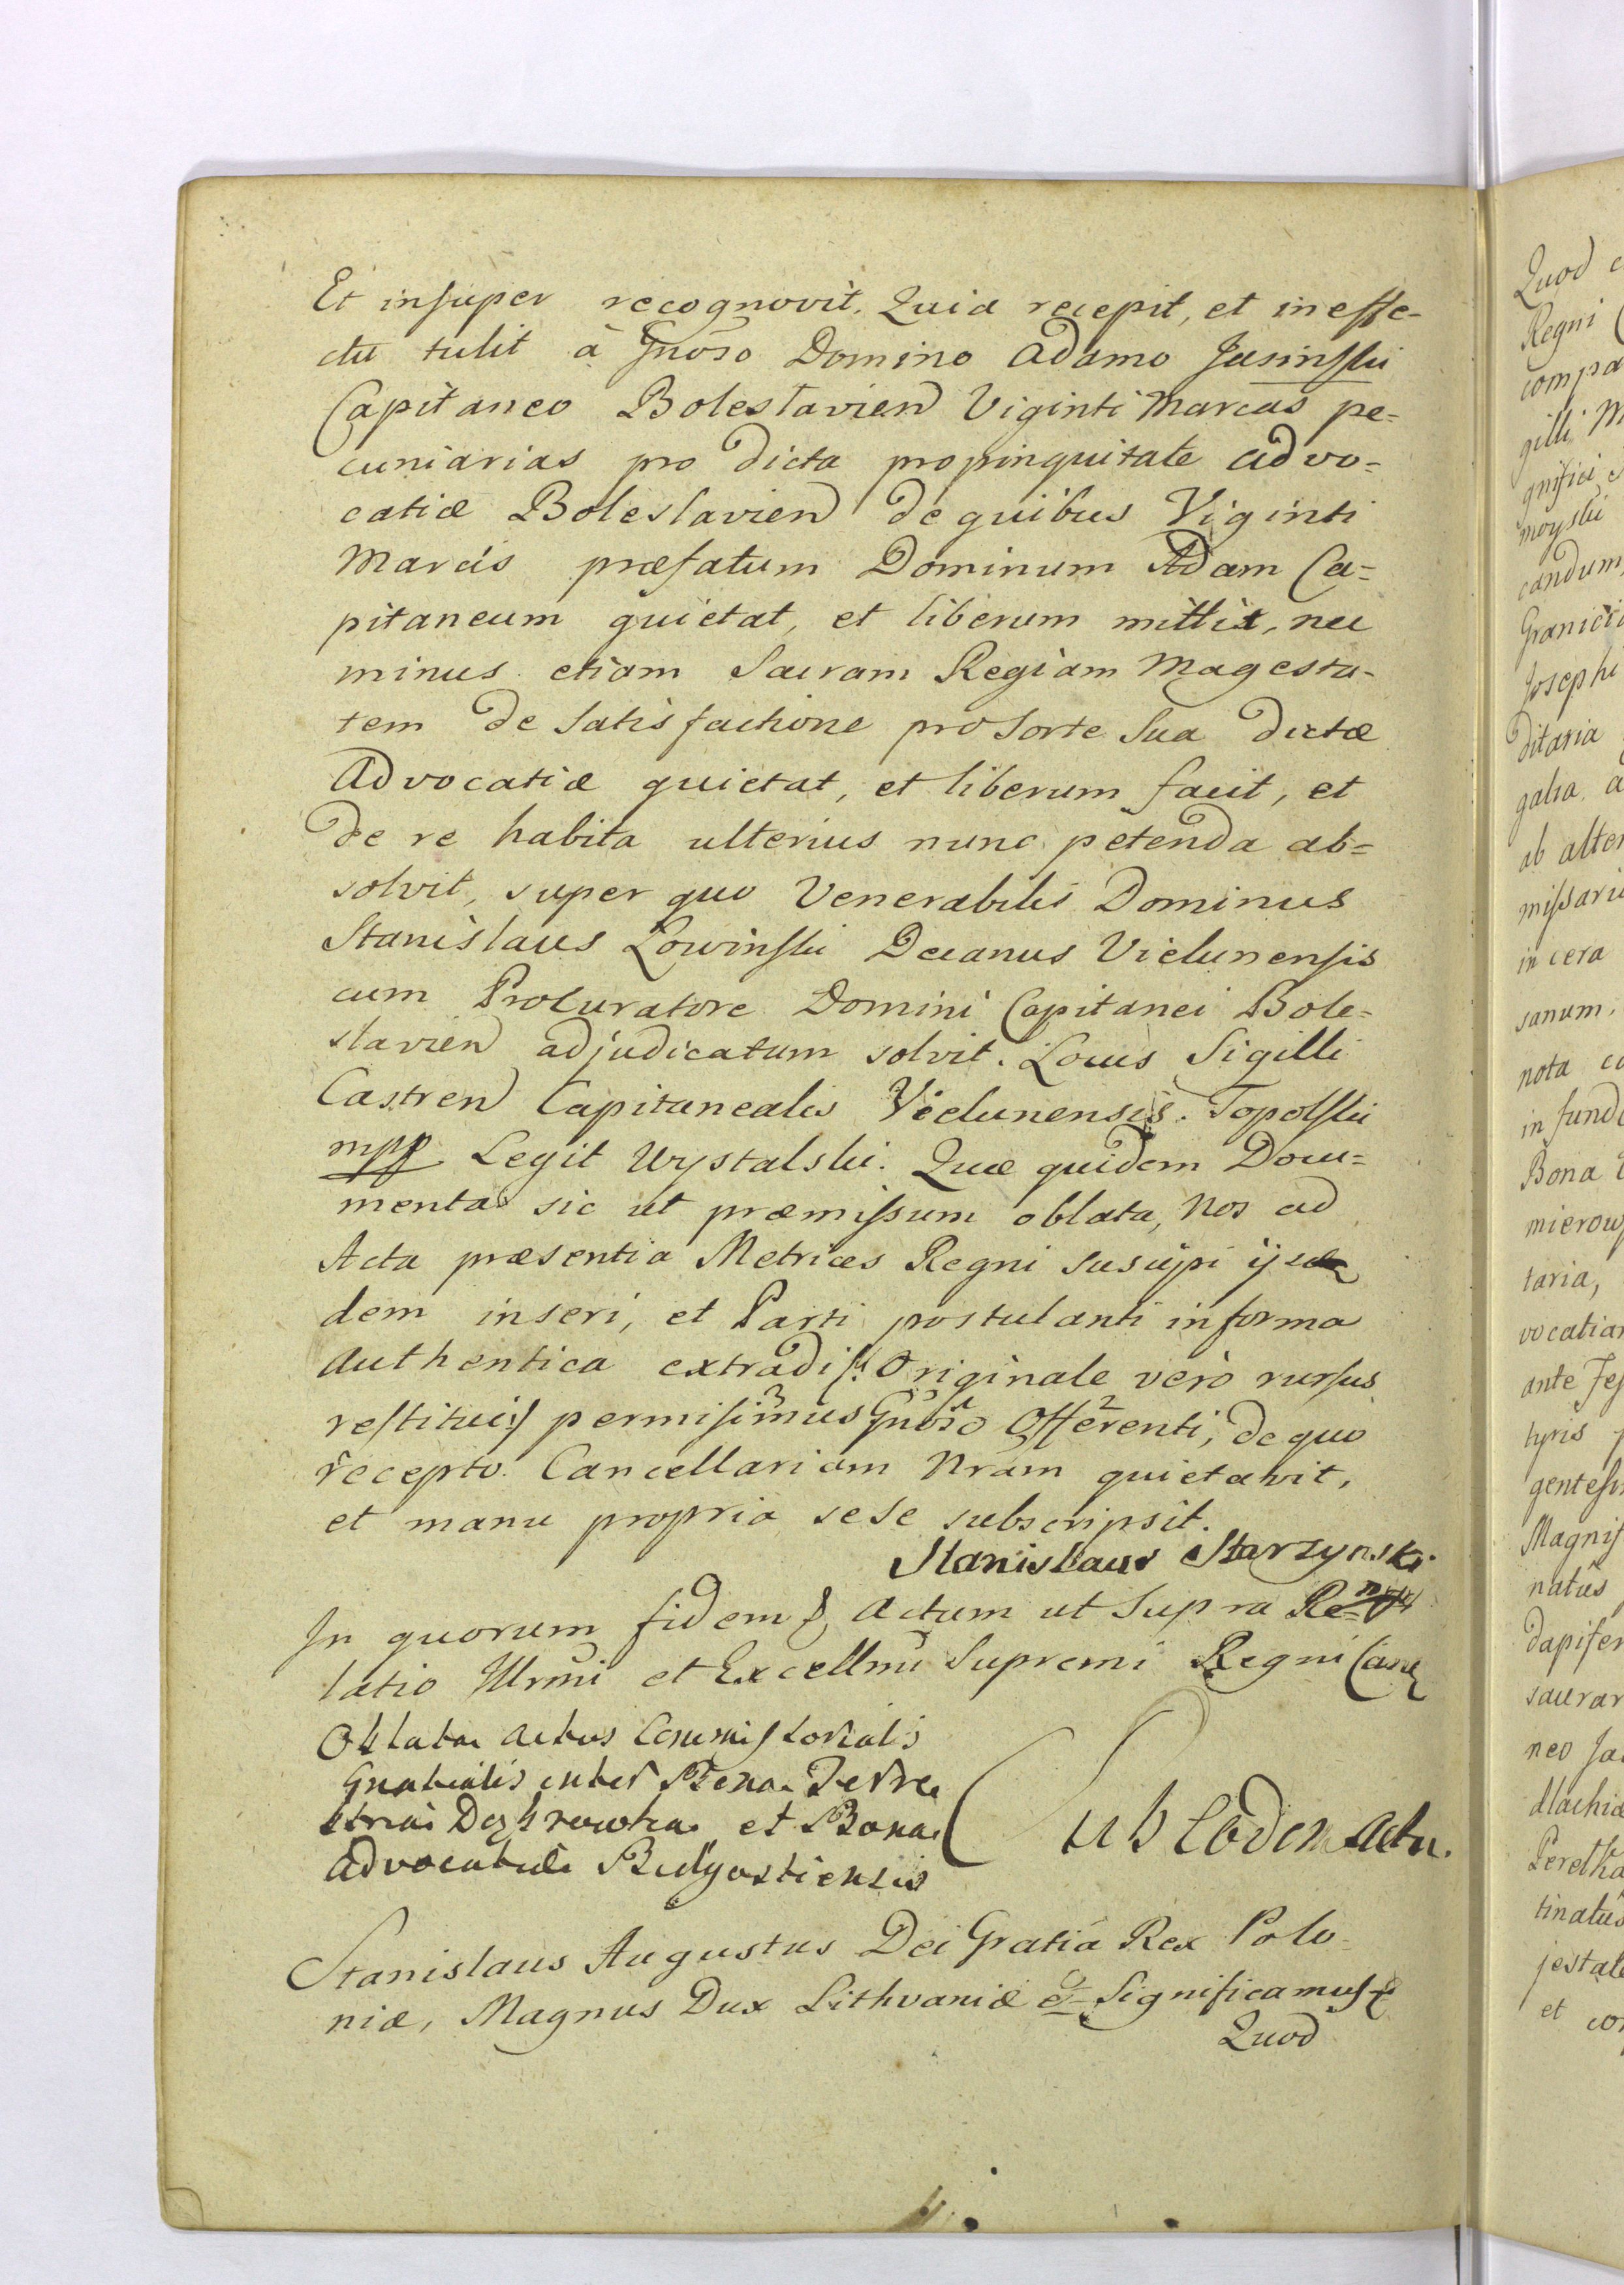 Et insuper recognovit. Quia recepit, et in effe-
ctu tulit à Gnoso Domino Adamo Jasinski
Capitaneo Boleslavien Viginti Marcas pe=
cuniarias pro dicta propinquitate advo=
catiæ Boleslavien de quibus Viginti
Marcis præfatum Dominum Adam Ca=
pitaneum quietat, et liberum mittit, nec
minus etiam Sacram Regiam Magesta-
tem de satisfactione pro sorte sua dictæ
Advocatiæ quietat, et liberum facit, et
de re habita ulterius nunc petenda ab=
solvit, super quo Venerabilis Dominus
Stanislaus Lowinski Decanus Vielunensis
cum Procuratore Domini Capitanei Bole=
slavien adjudicatum solvit. Locus Sigilli
Castren Capitanealis Vielunensis. Topolski
mpp Legit Wystalski. Quæ quidem Docu=
menta sic ut præmissum oblata, Nos ad
Acta præsentia Metrices Regni suscipi ijs
dem inseri, et Parti postulanti in forma
Authentica extradi /: Originale vero rursus
restitui :/ permisimus Gnoso Offerenti, de quo
recepto Cancellariam Nram quietavit,
et manu propria sese subscripsit.
Stanislaus Starzynski.
In quorum fidem & Actum ut Supra Re-
latio Illrmi et Excellmi Supremi Regni Canc
Oblata Actus Commissorialis
inter Bona Terre
stria et Bona
Advocatiali
Sub Eodem Actu.
Stanislaus Augustus Dei Gratiâ Rex Polo-
niæ, Magnus Dux Lithvaniæ & Significamus &
Quod
Quod
Regni
compa
gilli M
gnifici
moyski
candum,
Josephi
ditaria
galia
ab alter
missari
in cera
sanum,
nota co
in fund
Bona
mierow
taria,
vocatia
ante Fes
tyris
gentesi
Magnif
natûs
dapifer
sacrar
neo Ja
dlachiæ
tinatûs
jestate
et con